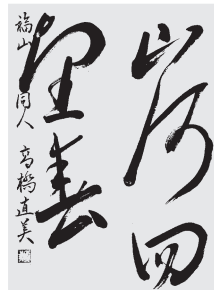 山河回
望春
福山 同人 高橋直美